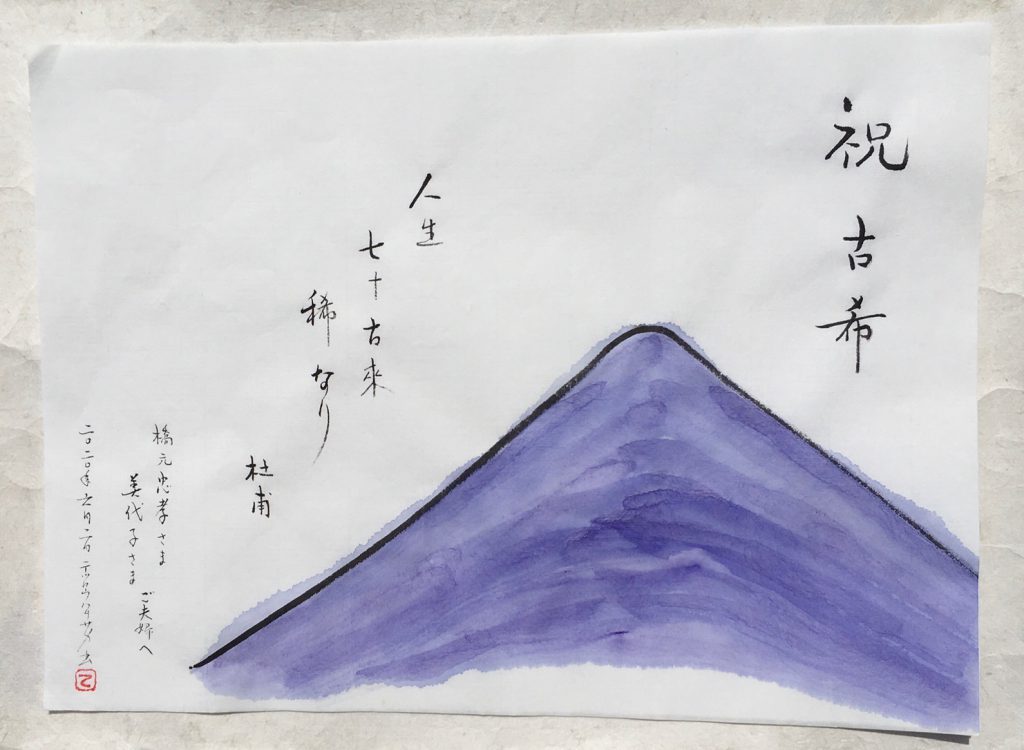 祝 古希
人生
七十古来
稀なり
杜甫
橋元忠孝さま
美代子さま
ご夫婦へ
二〇二〇年六月